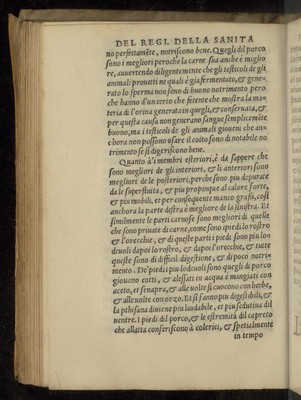 DEL REGI. DELLA SANITA
no perfettamẽte, notriscono bene. Quegli dil porco
sono i megliori peroche la carne sua anche è meglio
re, auuertendo diligentemente che gli testicoli de gli
animali prouetti ne quali è gia fermentato, & gene-
rato lo sperma non sono di buono notrimento pero
che hanno d'un certo che fetente che mostra la ma-
teria di l'orina generata in quegli, & conseruata, &
per questa causa non generano sangue semplicemẽte
buono, ma i testicoli de gli animali giouenì che an-
chora non possono usare il coito sono di notabile no
trimento se si digeriscono bene.
Quanto à i membri esteriori, è da sappere che
sono megliori de gli interiori, & li anteriori sono
megliori de le posteriori, perche sono piu depurate
da le superfluita, & piu propinque al calore forte,
& piu mobili, et per consequente manco grassi, così
anchora la parte destra è megliore de la sinistra. Et
similmente le parti carnose sono megliori di quelle
che sono priuate di carne, come sono i piedi lo rostro
& l'orecchie, & di queste parti i piedi sono piu lo
deuoli dapoi lo rostro, & dapoi l'orecchie, & tutte
queste sono di difficil digestione, & di poco notri-
mento. De' piedi i piu lodeuoli sono quegli di porco
giouano cotti, & alessati in acqua è mangiati con
aceto, et senapra, & alle uolte si cuocono con herbe,
& alle uolte con orzo. Et si fanno piu digestibili, &
la pthisana diuiene piu laudabile, et piu sedutina dil
uentre. I piedi dil porco, & le estremità dil capreto
che allatta conferiscono à colerici, & spetialmente
in tempo